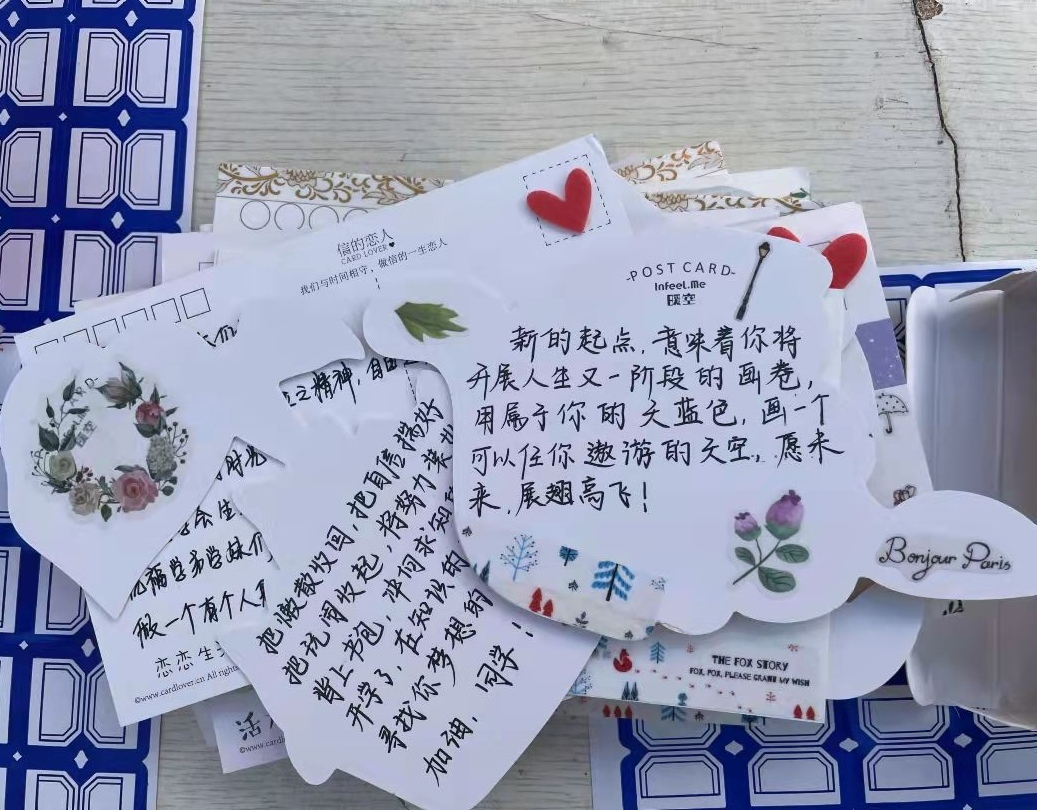 信的恋人
CARD LOVER
我们与时间相守，做信的一生恋人
-POST CARD-
Infeel.Me
暖空
新的起点，意味着你将
开展人生又一阶段的画卷，
用属于你的天蓝色，画一个
可以任你遨游的天空，愿未
来，展翅高飞！
Bonjour Paris
THE FOX STORY
FOX, FOX, PLEASE GRANT MY WISH
之精神，自由
时光
会生
福学弟学妹们
做一个有个人
恋恋生
©www.cardlover.cn All rights
把懒散收回，把自信揣好
把玩闹收起，将努力装
背上书包，冲向求知
开学了，在知识的
寻找你梦想的
加油，同学！
活
©www.cardl